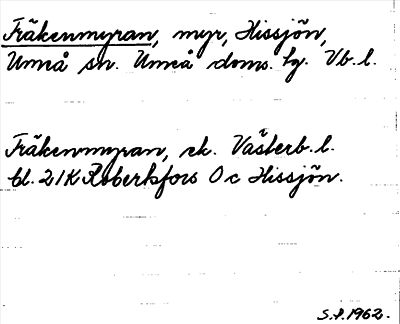 Fräkenmyran, myr, Hissjön,
Umeå sn. Umeå doms. hg. Vb. l.
Fräkenmyran, ek. Västerb. l.
bl. 21K Robertsfors 0 c Hissjön.
S.f. 1962.